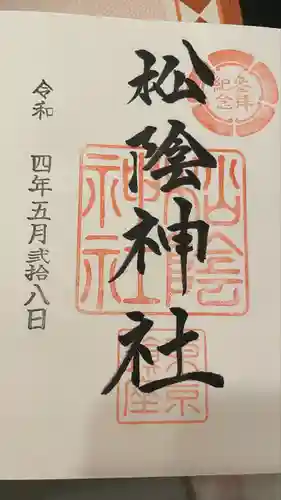 参拝
紀念
松陰神社
松陰神社
東京
令和 四年五月弐拾八日